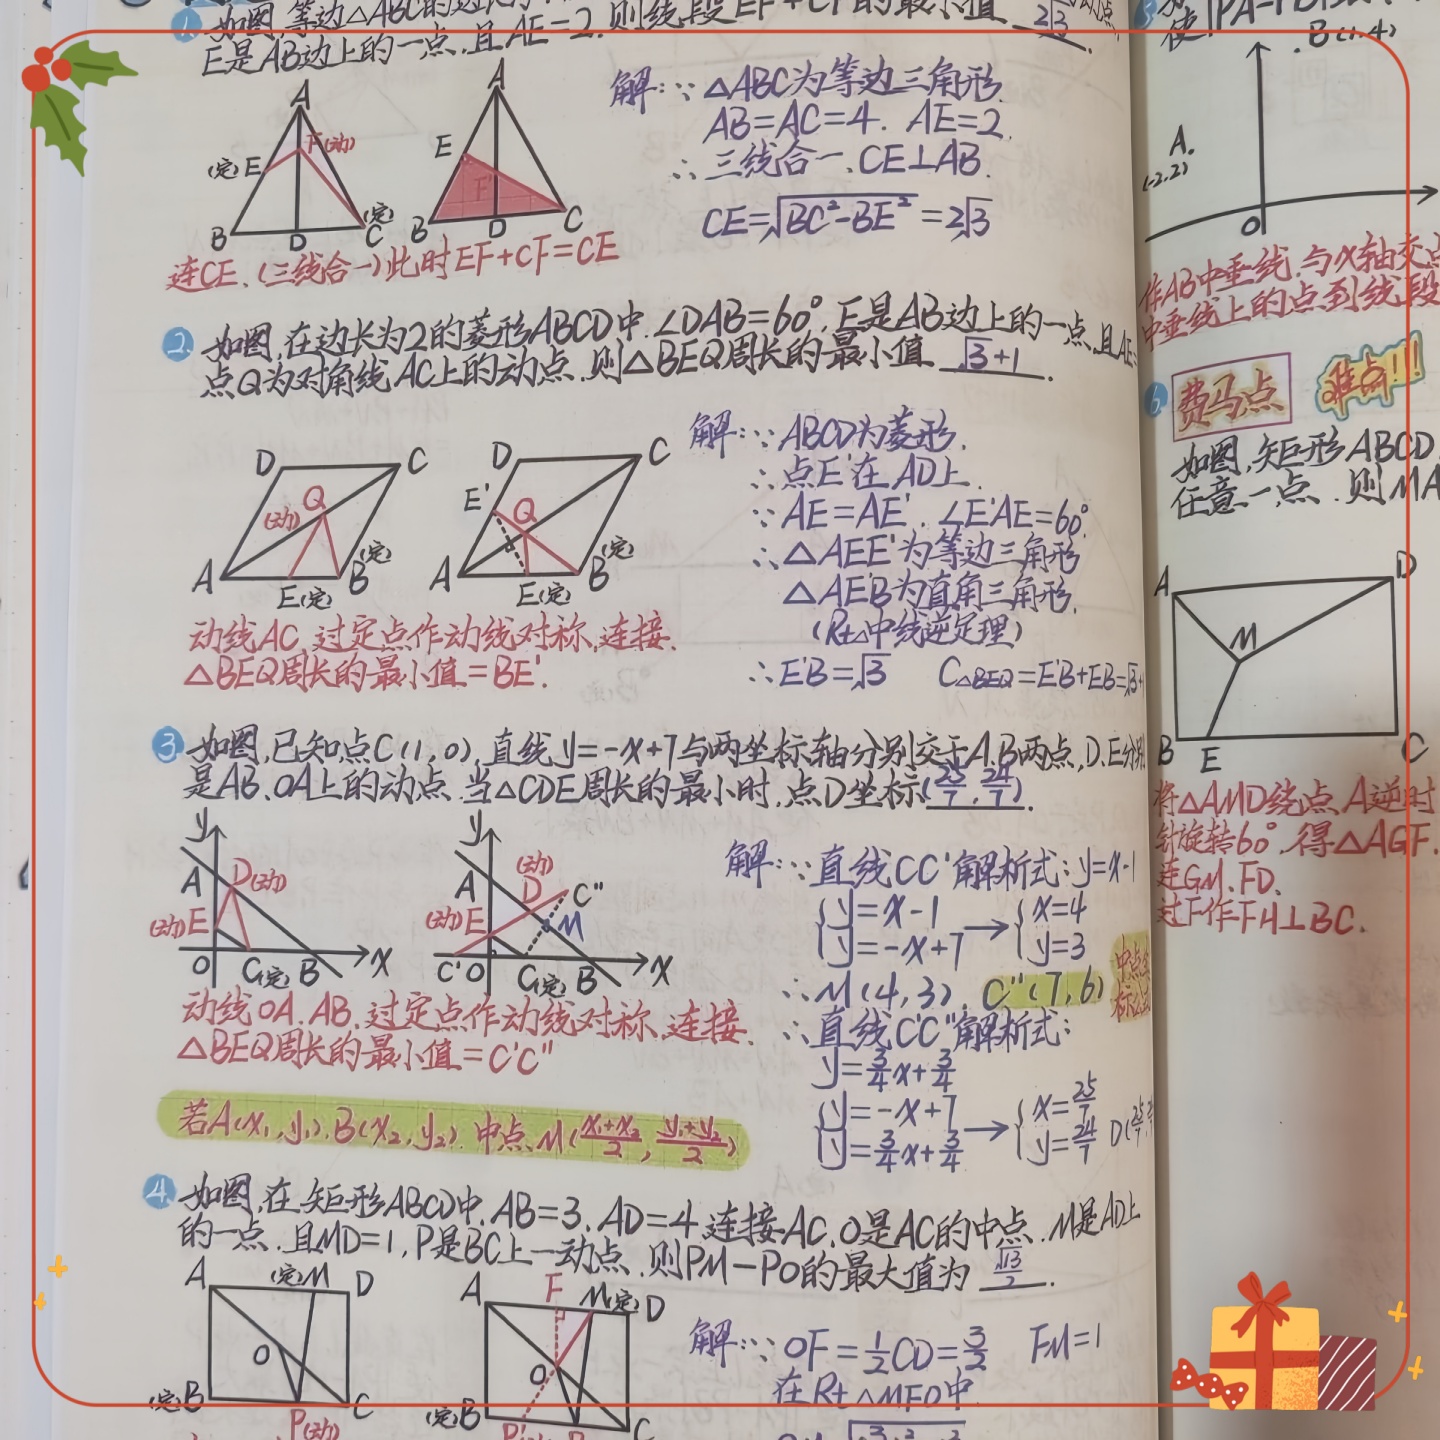 1. 如图,等边△ABC的边长为
则线段EF+CF的最小值 2√3
E是AB边上的一点,且AE=2.
解:∵△ABC为等边三角形.
AB=AC=4. AE=2.
∴三线合一.CE⊥AB.
CE=√BC²-BE² =2√3
A
F(动)
(定)E
B D C(定)
A
E
F
B D C
连CE.(三线合一)此时EF+CF=CE
2. 如图,在边长为2的菱形ABCD中.∠DAB=60°.E是AB边上的一点,且AE=
点Q为对角线AC上的动点.则△BEQ周长的最小值 √3+1.
D C
Q
(动)
A
E(定)
B(定)
D C
E'
Q
A
E(定)
B(定)
解:∵ABCD为菱形.
∴点E'在AD上.
∵AE=AE'.∠E'AE=60°
∴△AEE'为等边三角形
△AE'B为直角三角形.
(Rt△中线逆定理)
∴E'B=√3 C△BEQ=E'B+EB=√3+
动线AC,过定点作动线对称,连接.
△BEQ周长的最小值=BE'.
3. 如图,已知点C(1,0),直线y=-x+7与两坐标轴分别交于A.B两点,D.E分别
是AB.OA上的动点.当△CDE周长的最小时,点D坐标(25/7,24/7).
y
A D(动)
(动)E
O C(定) B x
y
(动)
A D C"
(动)E M
C' O C(定) B x
解:∵直线CC"解析式:y=x-1
{y=x-1
y=-x+7 → {x=4
y=3
∴M(4,3), C"(7,6)
中点坐
标公式
∴直线C'C"解析式:
y=3/4x+3/4
{y=-x+7
y=3/4x+3/4 → {x=25/7
y=24/7 D(25/7,
动线OA.AB.过定点作动线对称.连接.
△BEQ周长的最小值=C'C"
若A(x₁,y₁).B(x₂,y₂).中点M(x₁+x₂/2,y₁+y₂/2)
4. 如图,在矩形ABCD中.AB=3.AD=4.连接AC.O是AC的中点.M是AD上
的一点.且MD=1,P是BC上一动点.则PM-PO的最大值为 √13/2.
A (定)M D
O
(定)B P(动) C
A F M(定) D
O
(定)B P' P C
解:∵OF=1/2CD=3/2 FM=1
在Rt△MFO中
使|PA-PB|
.B(1,4)
A.
(-2,2)
O
作AB中垂线.与x轴交点
中垂线上的点到线段
6. 费马点 难点!!!
如图,矩形ABCD,
任意一点.则MA
A D
M
B E C
将△AMD绕点A逆时
针旋转60°.得△AGF.
连GM.FD.
过F作FH⊥BC.